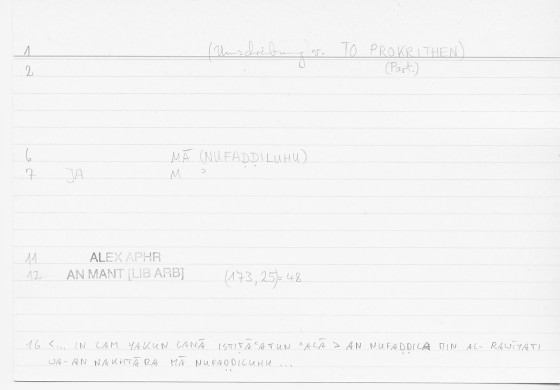 1 (Umschreibung v. TO PROKRITHEN)
2 (Part.)
6 MĀ (NUFAḌḌILUHU)
7 JA M ʾ
11 ALEX APHR
12 AN MANT [LIB ARB] (173,25)=48
16 <... IN LAM YAKUN LANĀ ISTIṬĀʿATUN ʿALĀ > AN NUFAḌḌILA MIN AL-RAWĪYATI
WA-AN NAKHTĀRA MĀ NUFAḌḌILUHU ...